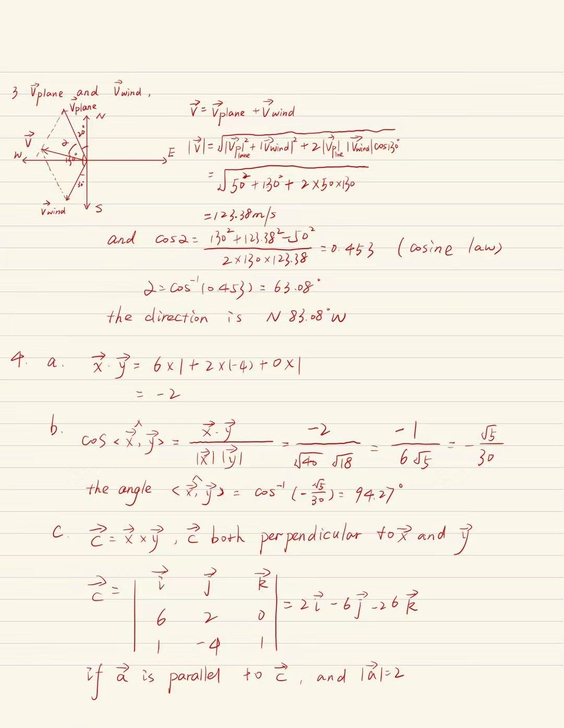 3 V⃗plane and V⃗wind,
V⃗plane N
V⃗ 20° 2
W 130° E
30°
V⃗wind S
V⃗ = V⃗plane + V⃗wind
|V⃗| = √(|V⃗plane|² + |V⃗wind|² + 2|V⃗plane||V⃗wind|cos130°)
= √(50² + 130² + 2×50×130)
= 123.38 m/s
and cos2 = (130² + 123.38² - 50²) / (2×130×123.38) = 0.453 (cosine law)
2 = cos⁻¹(0.453) = 63.08°
the direction is N 83.08° W
4. a. x⃗ · y⃗ = 6×1 + 2×(-4) + 0×1
= -2
b. cos<x⃗, y⃗> = (x⃗ · y⃗) / (|x⃗| |y⃗|) = -2 / (√40 √18) = -1 / (6√5) = -√5/30
the angle <x⃗, y⃗> = cos⁻¹(-√5/30) = 94.27°
c. c⃗ = x⃗ × y⃗, c⃗ both perpendicular to x⃗ and y⃗
c⃗ = | i⃗ j⃗ k⃗ |
| 6 2 0 | = 2i⃗ - 6j⃗ - 26k⃗
| 1 -4 1 |
if a⃗ is parallel to c⃗, and |a⃗|=2